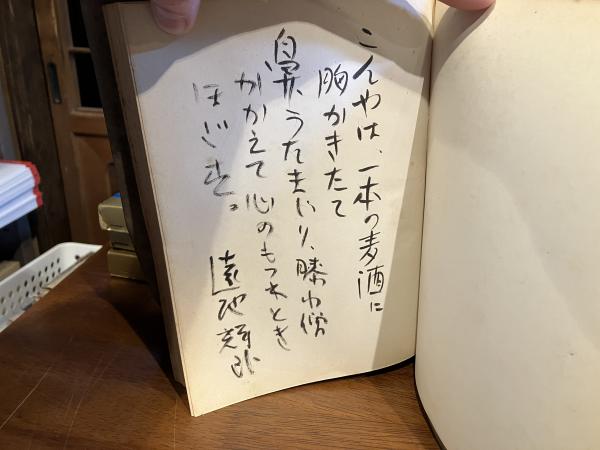 こんやは、一本の麦酒に
胸かきたて
鼻うたまじり、膝小僧
かかえて心のもつれとき
ほぐす。
遠地輝武